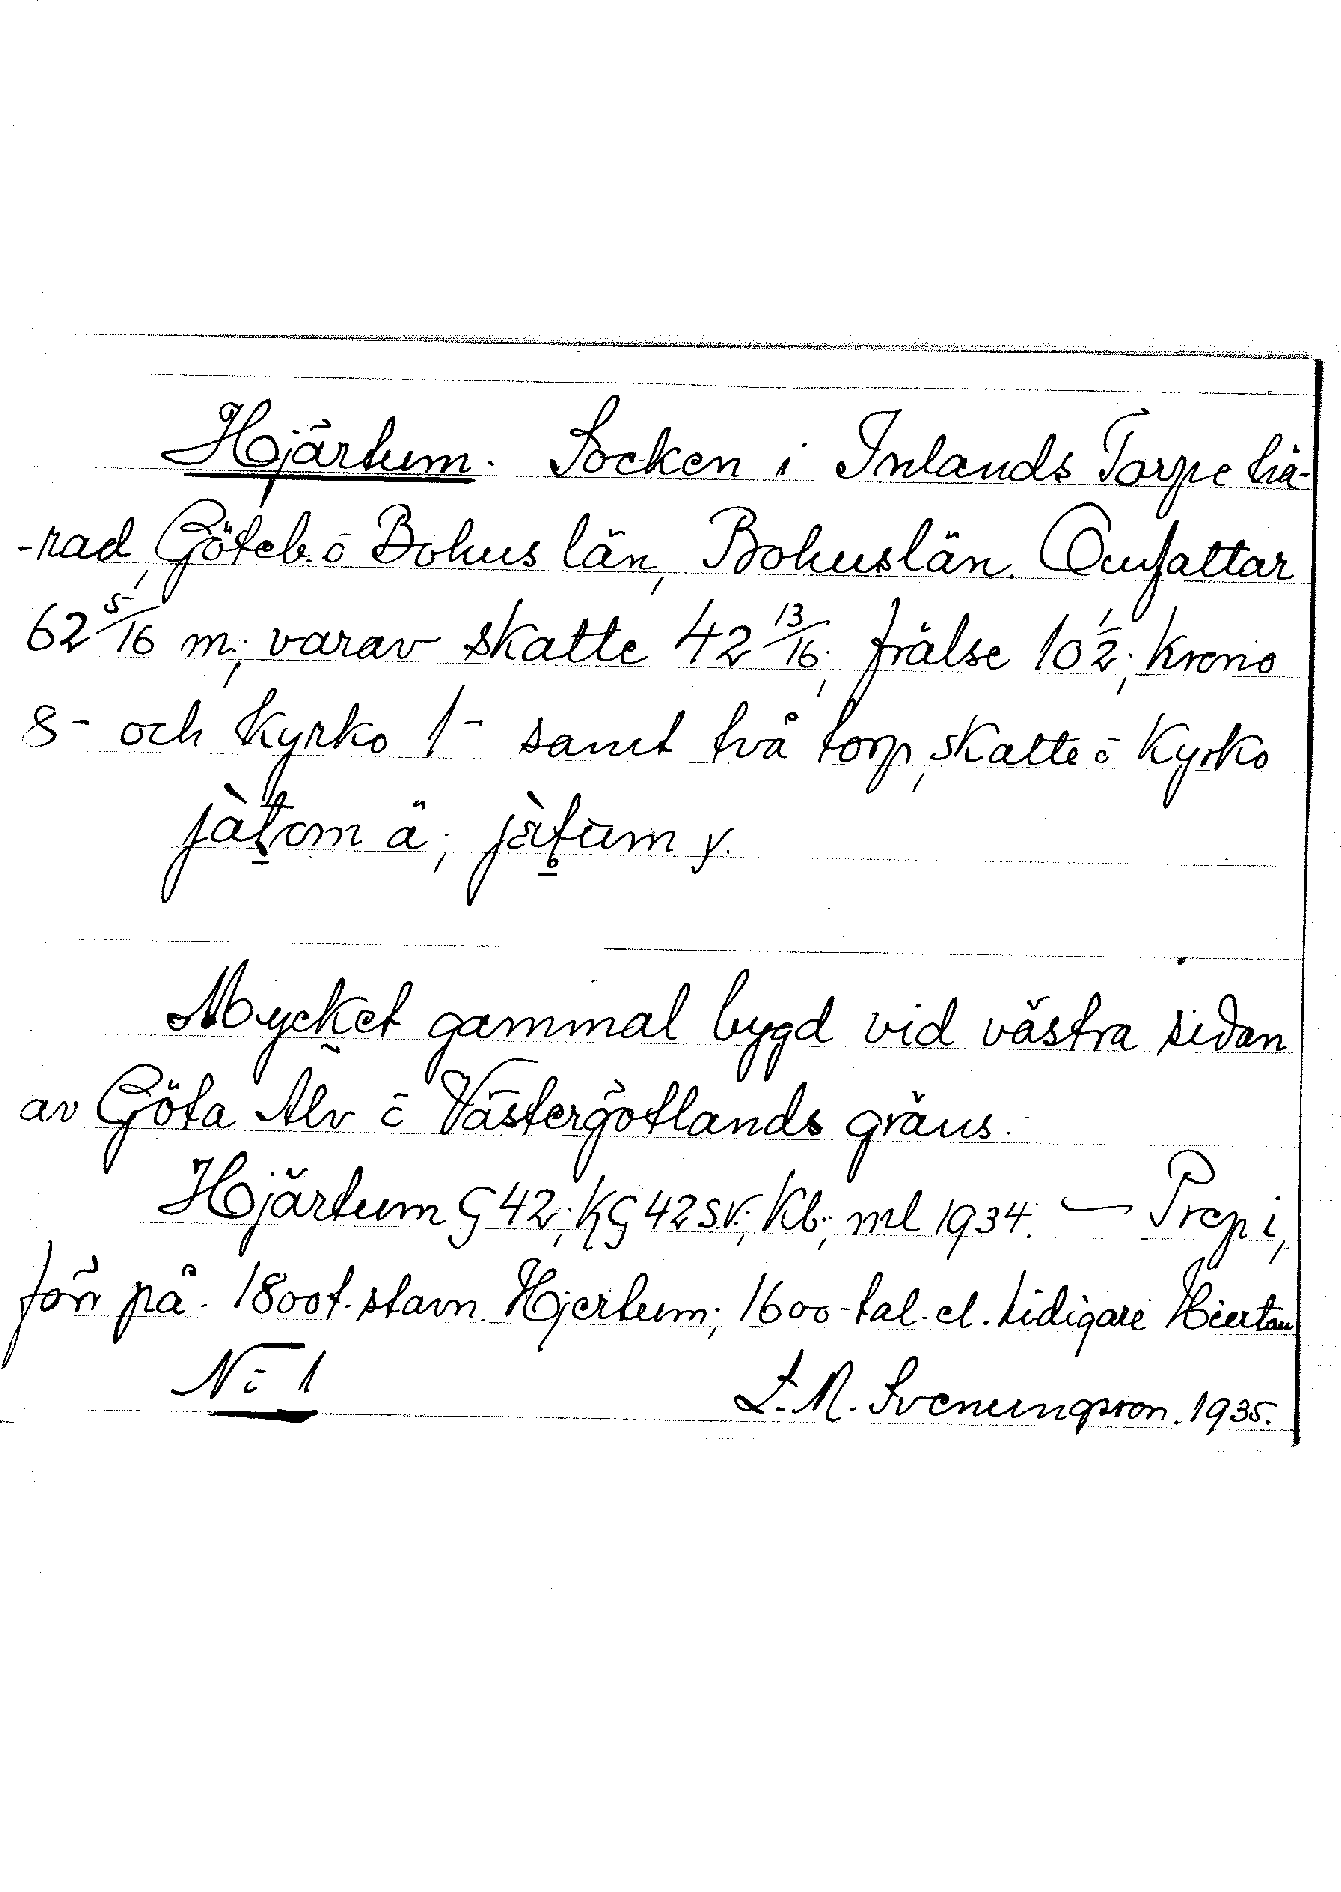 Hjärtum. Socken i Inlands Torpe hä-
-rad, Göteb. o Bohus län, Bohuslän. Omfattar
62 5/16 m; varav skatte 42 13/16; frälse 10 1/2; krono
8- och Kyrko 1- samt två torp, skatte o Kyrko
jàtom ä; jàtum y.
Mycket gammal bygd vid västra sidan
av Göta Älv o Västergötlands gräns.
Hjärtum G 42; KG 42 SV; Kb; ml 1934. — Prep i,
förr på. 1800 t. stavn. Hjertum; 1600-tal. el. tidigare
No 1
L. A. Svenungson. 1935.